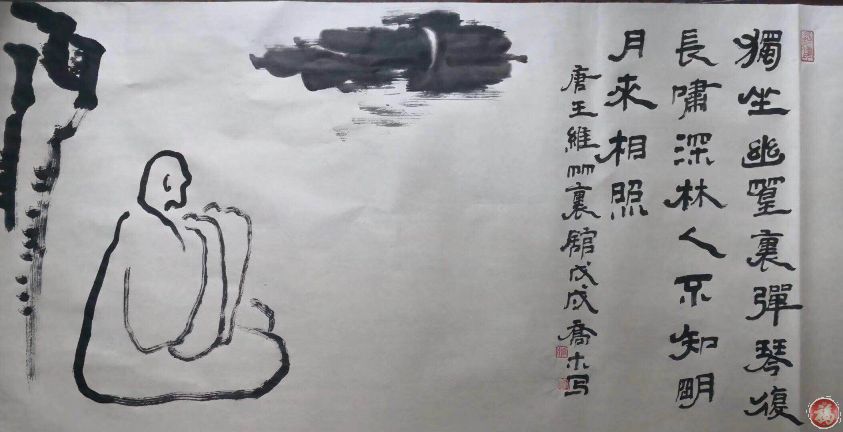 獨坐幽篁裏彈琴復
長嘯深林人不知明
月來相照
唐王維竹裏館戊戌喬木写
福